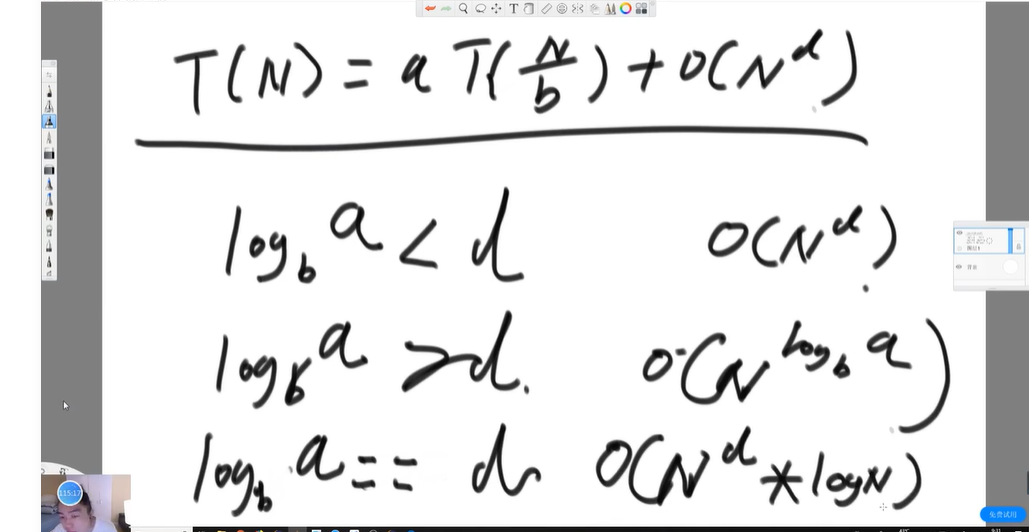 T(N) = a T(N/b) + O(N^d)
log_b a < d   O(N^d)
log_b a > d.   O(N^(log_b a))
log_b a == d   O(N^d * logN)
背景
115:17
免费试用